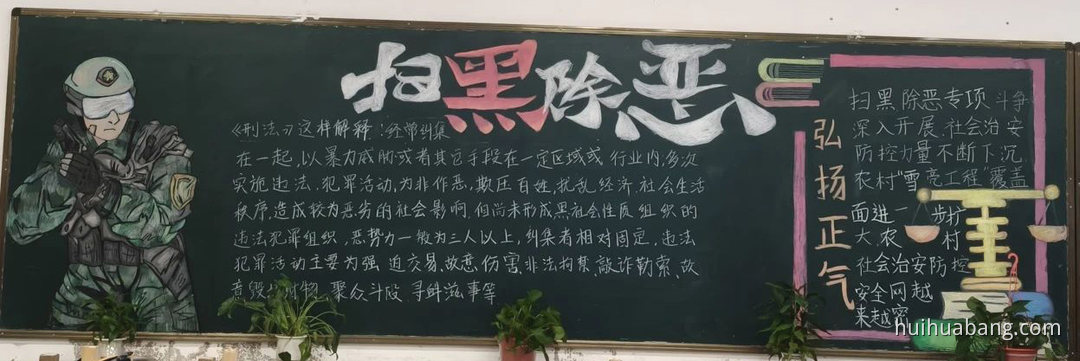 扫黑除恶
《刑法》这样解释：经常纠集
在一起,以暴力威胁或者其它手段在一定区域或行业内,多次
实施违法、犯罪活动,为非作恶,欺压百姓,扰乱经济、社会生活
秩序,造成较为恶劣的社会影响,但尚未形成黑社会性质组织的
违法犯罪组织,恶势力一般为三人以上,纠集者相对固定,违法
犯罪活动主要为强迫交易,故意伤害,非法拘禁,敲诈勒索,故
意毁 财物、聚众斗殴、寻衅滋事等
弘扬正气
扫黑除恶专项斗争
深入开展,社会治安
防控力量不断下沉,
农村“雪亮工程”覆盖
面进一步扩
大,农村
社会治安防控
安全网越
来越密
huihuabang.com